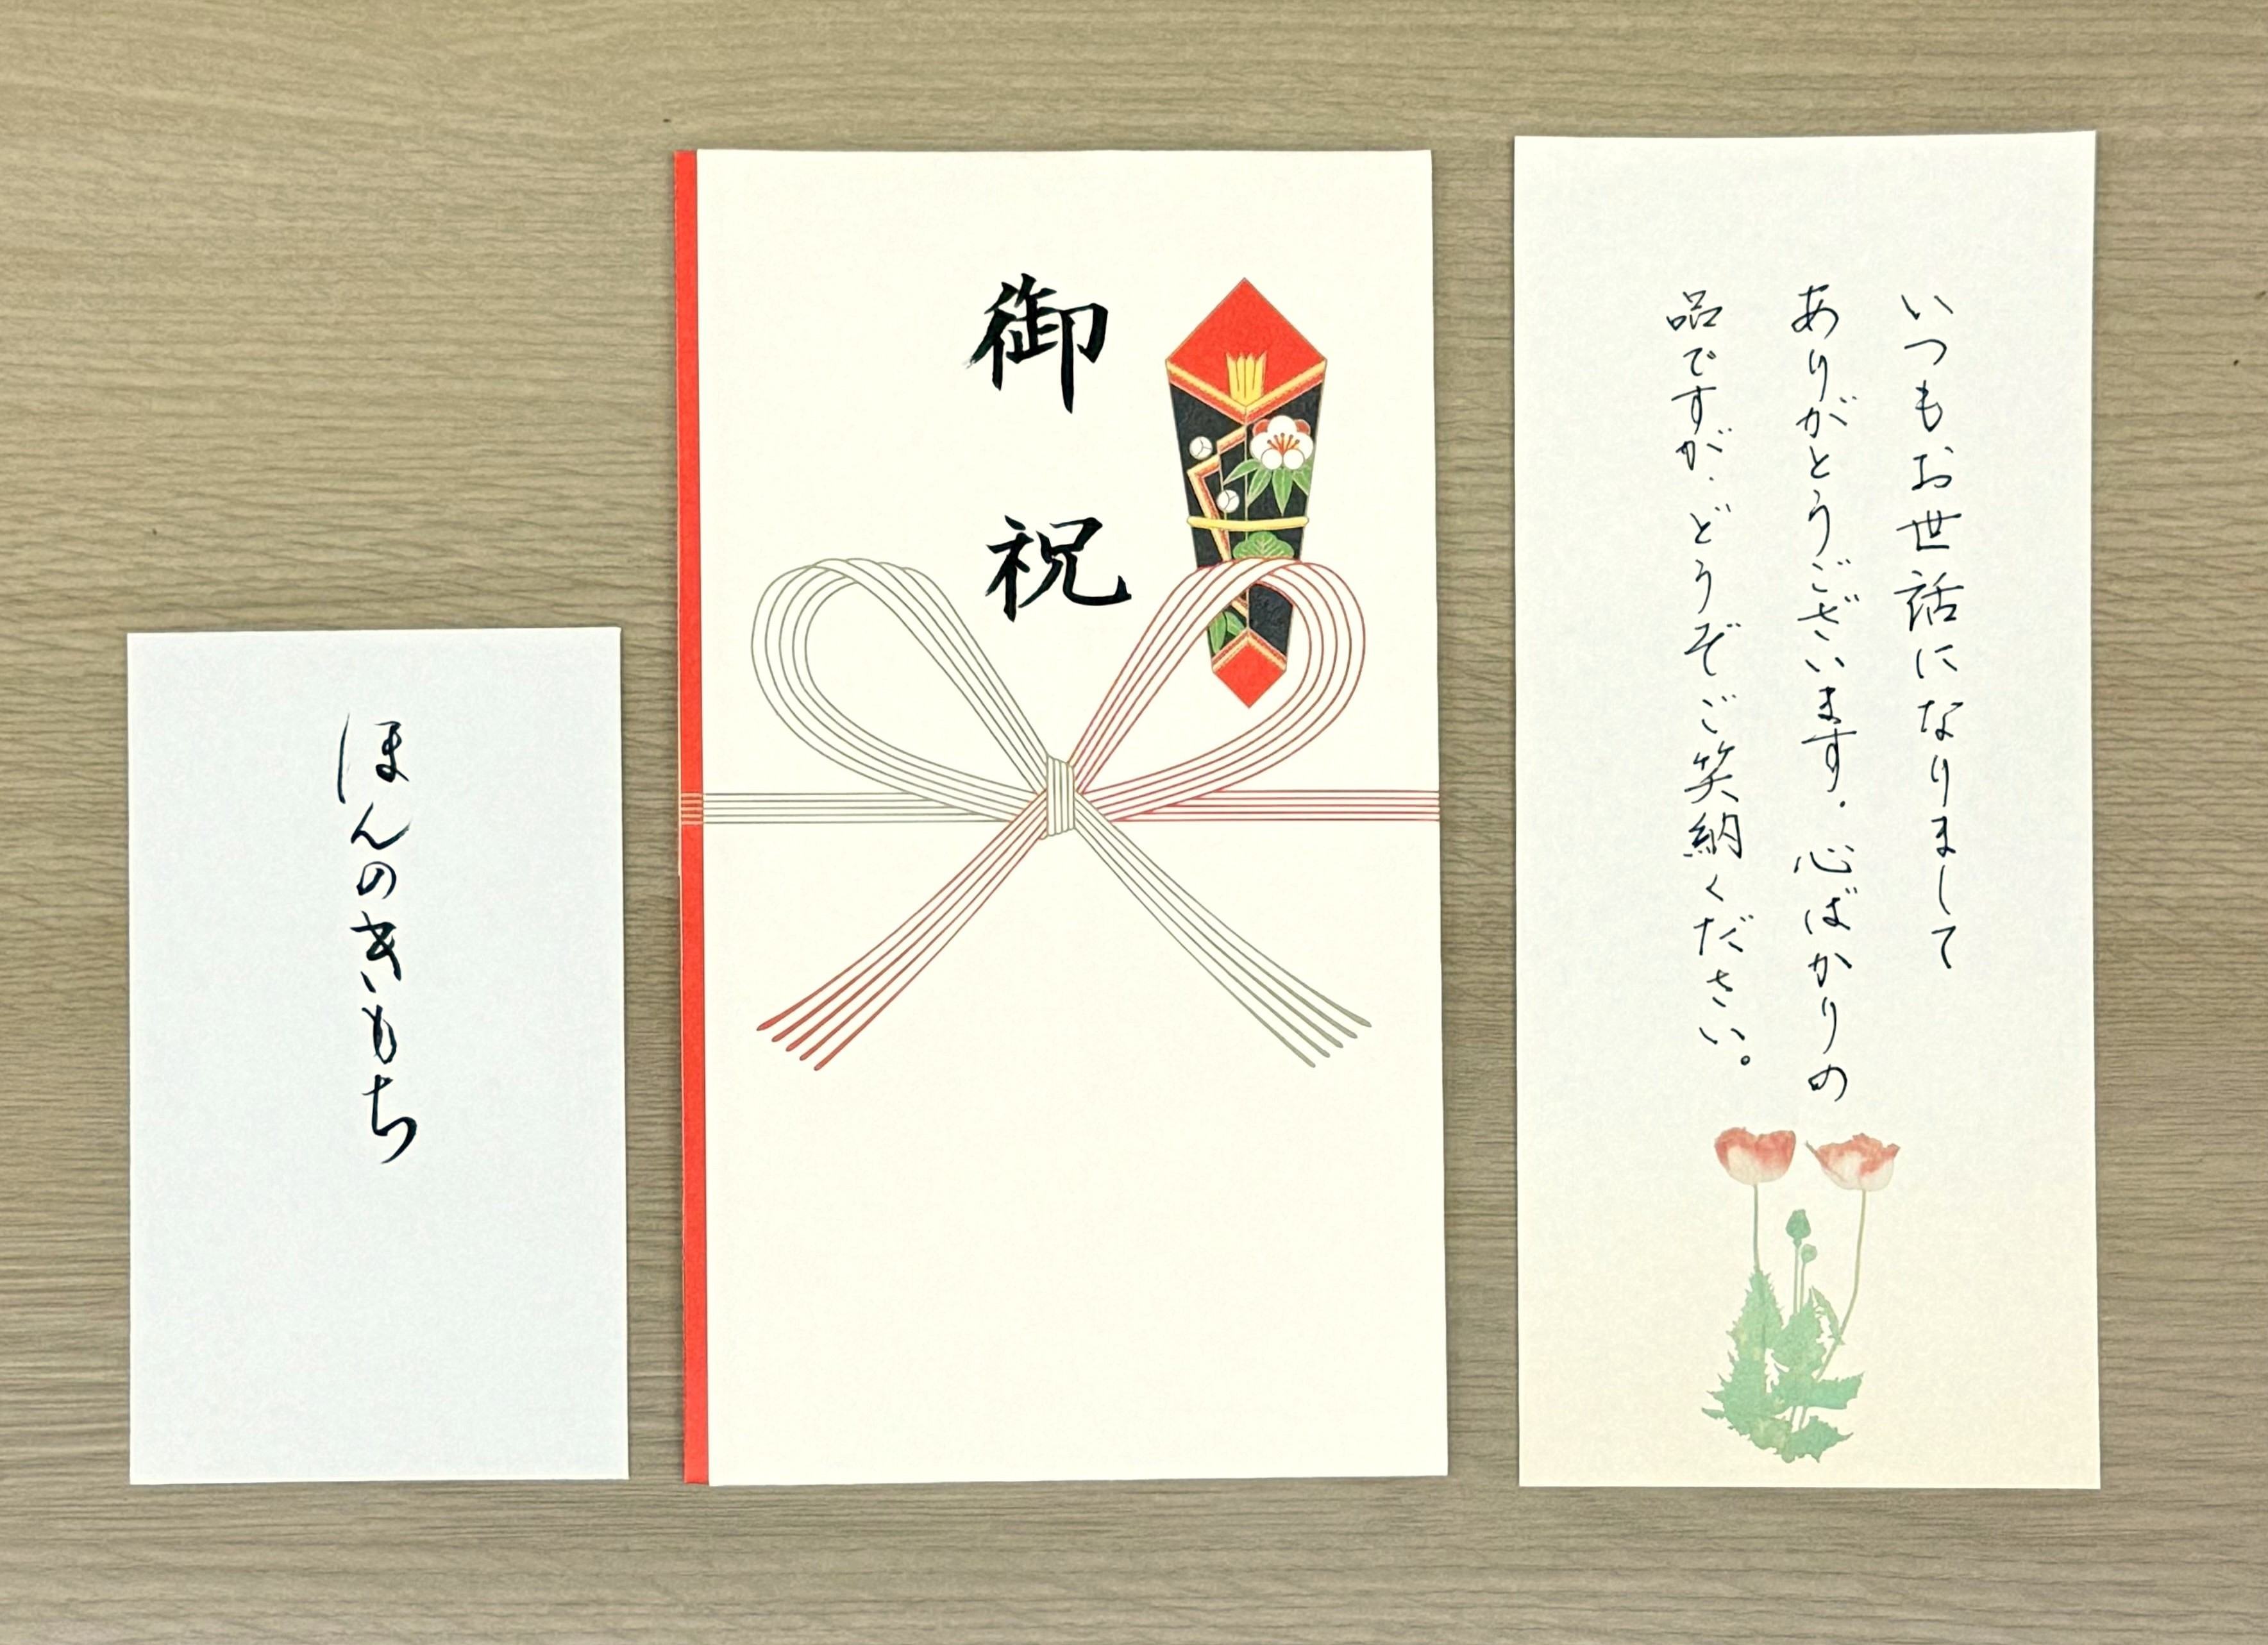 いつもお世話になりまして
ありがとうございます。心ばかりの
品ですが、どうぞご笑納ください。
御祝
ほんのきもち